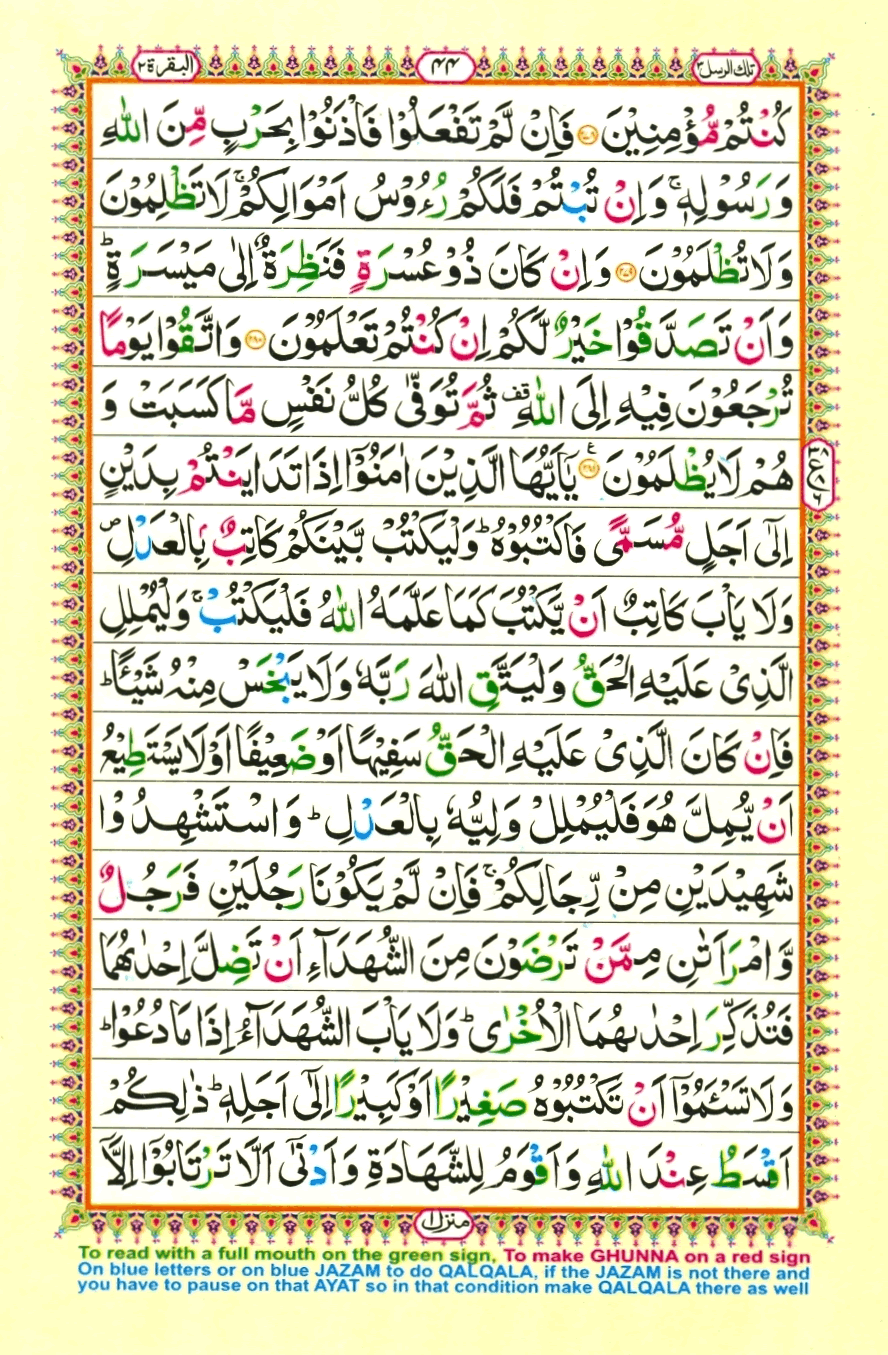 تلك الرسل ٣ ٤٤ البقرة ٢
كُنْتُمْ مُّؤْمِنِيْنَ ﴿۲۷۸﴾ فَاِنْ لَّمْ تَفْعَلُوْا فَاْذَنُوْا بِحَرْبٍ مِّنَ اللّٰهِ
وَرَسُوْلِهٖ ۚ وَاِنْ تُبْتُمْ فَلَكُمْ رُءُوْسُ اَمْوَالِكُمْ ۚ لَا تَظْلِمُوْنَ
وَلَا تُظْلَمُوْنَ ﴿۲۷۹﴾ وَاِنْ كَانَ ذُوْ عُسْرَةٍ فَنَظِرَةٌ اِلٰى مَيْسَرَةٍ ؕ
وَاَنْ تَصَدَّقُوْا خَيْرٌ لَّكُمْ اِنْ كُنْتُمْ تَعْلَمُوْنَ ﴿۲۸۰﴾ وَاتَّقُوْا يَوْمًا
تُرْجَعُوْنَ فِيْهِ اِلَى اللّٰهِ ۗقف ثُمَّ تُوَفّٰى كُلُّ نَفْسٍ مَّا كَسَبَتْ وَ
هُمْ لَا يُظْلَمُوْنَ ﴿۲۸۱﴾ ع يٰۤاَيُّهَا الَّذِيْنَ اٰمَنُوْۤا اِذَا تَدَايَنْتُمْ بِدَيْنٍ
اِلٰۤى اَجَلٍ مُّسَمًّى فَاكْتُبُوْهُ ؕ وَلْيَكْتُبْ بَّيْنَكُمْ كَاتِبٌۢ بِالْعَدْلِ ۪
وَلَا يَاْبَ كَاتِبٌ اَنْ يَّكْتُبَ كَمَا عَلَّمَهُ اللّٰهُ فَلْيَكْتُبْ ۚ وَلْيُمْلِلِ
الَّذِىْ عَلَيْهِ الْحَقُّ وَلْيَتَّقِ اللّٰهَ رَبَّهٗ وَلَا يَبْخَسْ مِنْهُ شَيْـًٔا ؕ
فَاِنْ كَانَ الَّذِىْ عَلَيْهِ الْحَقُّ سَفِيْهًا اَوْ ضَعِيْفًا اَوْ لَا يَسْتَطِيْعُ
اَنْ يُّمِلَّ هُوَ فَلْيُمْلِلْ وَلِيُّهٗ بِالْعَدْلِ ؕ وَاسْتَشْهِدُوْا
شَهِيْدَيْنِ مِنْ رِّجَالِكُمْ ۚ فَاِنْ لَّمْ يَكُوْنَا رَجُلَيْنِ فَرَجُلٌ
وَّامْرَاَتٰنِ مِمَّنْ تَرْضَوْنَ مِنَ الشُّهَدَآءِ اَنْ تَضِلَّ اِحْدٰىهُمَا
فَتُذَكِّرَ اِحْدٰىهُمَا الْاُخْرٰى ؕ وَلَا يَاْبَ الشُّهَدَآءُ اِذَا مَا دُعُوْا ؕ
وَلَا تَسْـَٔمُوْۤا اَنْ تَكْتُبُوْهُ صَغِيْرًا اَوْ كَبِيْرًا اِلٰۤى اَجَلِهٖ ؕ ذٰلِكُمْ
اَقْسَطُ عِنْدَ اللّٰهِ وَاَقْوَمُ لِلشَّهَادَةِ وَاَدْنٰۤى اَلَّا تَرْتَابُوْۤا اِلَّاۤ
منزل ١
To read with a full mouth on the green sign, To make GHUNNA on a red sign
On blue letters or on blue JAZAM to do QALQALA, if the JAZAM is not there and
you have to pause on that AYAT so in that condition make QALQALA there as well